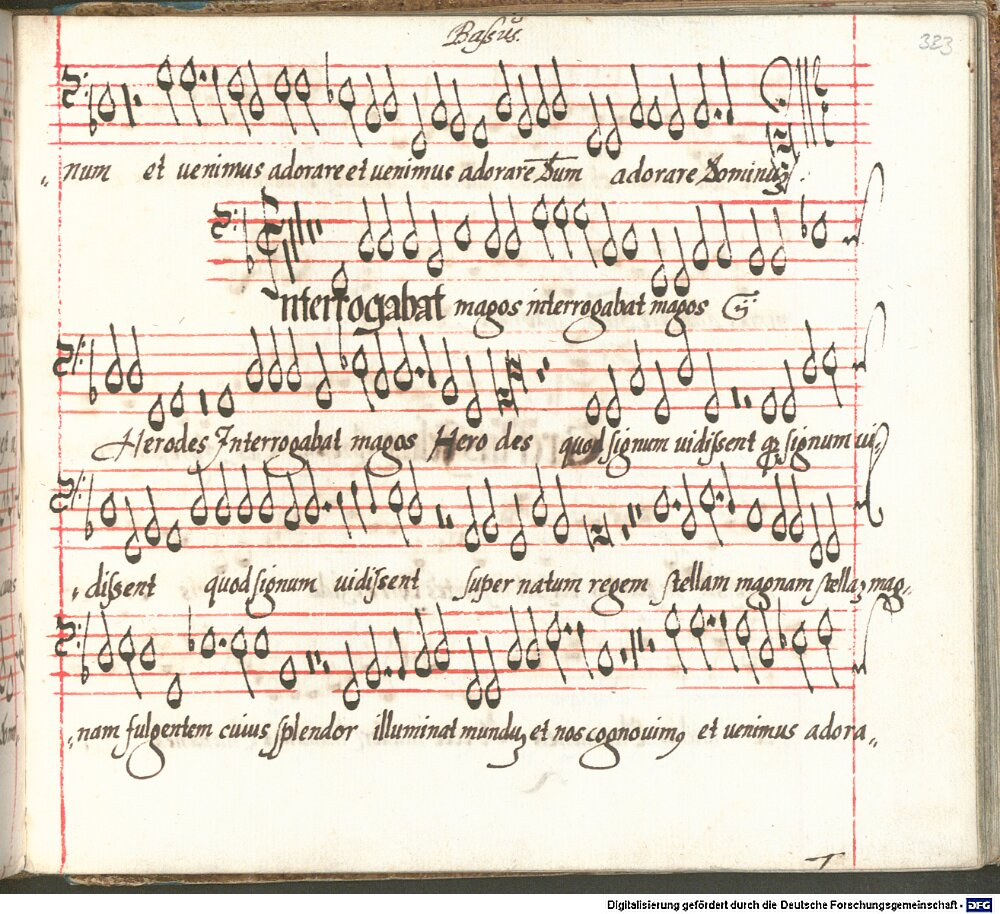 Bassus.
323
num et uenimus adorare et uenimus adorare Dum adorare Dominum
Interrogabat magos interrogabat magos
Herodes Interrogabat magos Herodes quod signum uidissent signum ui
dissent quod signum uidissent super natum regem stellam magnam stellaʒ mag„
„nam fulgentem cuius splendor illuminat munduʒ et nos cognouimꝰ et uenimus adora„
Digitalisierung gefördert durch die Deutsche Forschungsgemeinschaft - DFG